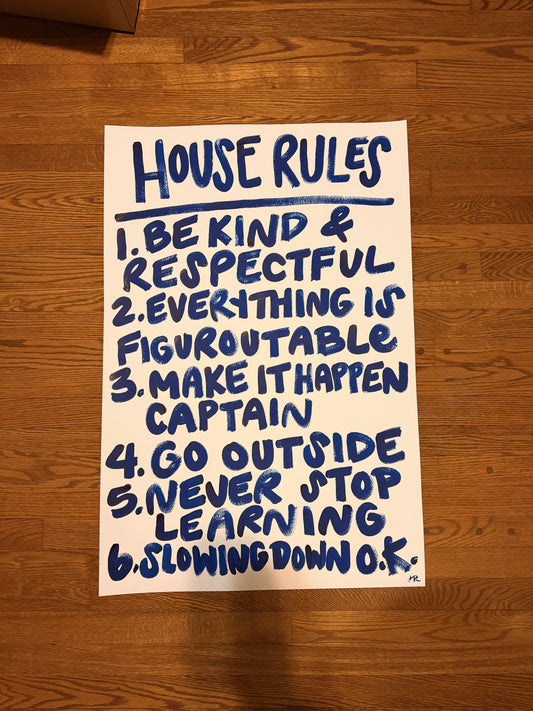 HOUSE RULES
1. BE KIND &
RESPECTFUL
2. EVERYTHING IS
FIGUROUTABLE
3. MAKE IT HAPPEN
CAPTAIN
4. GO OUTSIDE
5. NEVER STOP
LEARNING
6. SLOWING DOWN O.K.